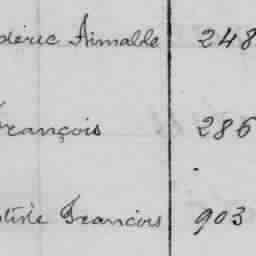 déric Aimable 248
François 286
stine Francois 903